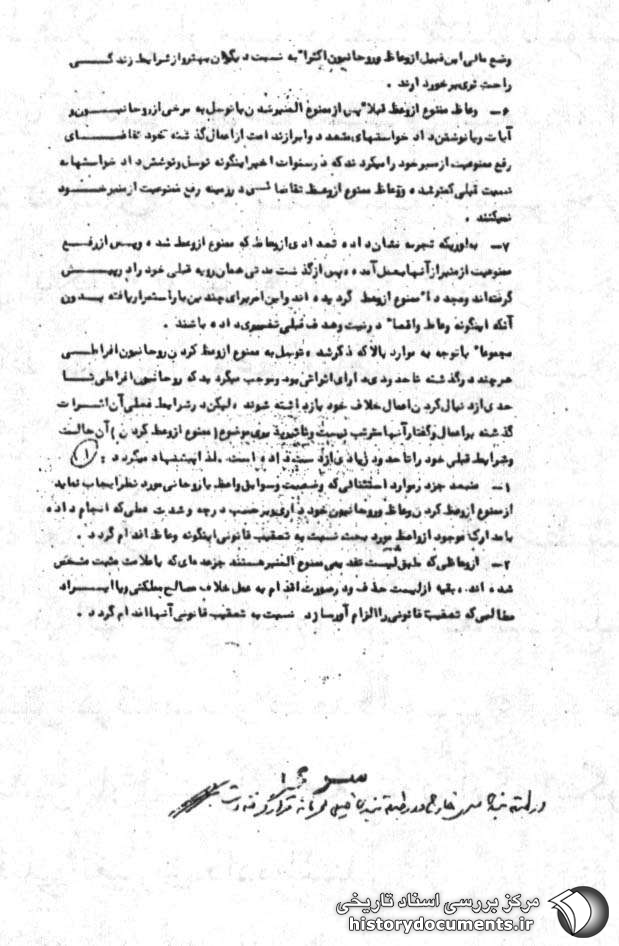 وضع مالی این قبیل از وعاظ و روحانیون اکثرا" به نسبت دیگران بهتر و از شرایط زندگی
راحت تری برخوردارند .
۶- وعاظ ممنوع از وعظ قبلا" پس از ممنوع المنبر شدن با توسل به برخی از روحانیون و
آیات و با نوشتن داد خواستهای متعدد و ابراز ندامت از اعمال گذشته خود تقاضای
رفع ممنوعیت از منبر خود را میکردند که در سنوات اخیر اینگونه توسل و نوشتن داد خواستها به
نسبت قبلی کمتر شده و وعاظ ممنوع از وعظ تقاضائی در زمینه رفع ممنوعیت از منبر خود
نمیکنند .
۷- بطوریکه تجربه نشان داده تعدادی از وعاظ که ممنوع از وعظ شده و سپس از رفع
ممنوعیت از منبر از آنها بعمل آمده ، پس از گذشت مدتی همان رویه قبلی خود را در پیش
گرفته اند و مجددا" ممنوع از وعظ گردیده اند و این امر برای چندین بار استمرار یافته بدون
آنکه اینگونه وعاظ واقعا" در نیت و هدف قبلی تغییری داده باشند .
مجموعا" با توجه به موارد بالا که ذکر شد ، توسل به ممنوع از وعظ کردن روحانیون افراطی
هر چند در گذشته تا حدودی دارای اثراتی بود و موجب میگردید که روحانیون افراطی تا
حدی از دنبال کردن اعمال خلاف خود باز داشته شوند ، لیکن در شرایط فعلی آن اثرات
گذشته بر اعمال و گفتار آنها مترتب نیست و تاثیر موضوع (ممنوع از وعظ کردن) آن حالت
و شرایط قبلی خود را تا حدود زیادی از دست داده است . لذا پیشنهاد میگردد : (۱)
۱- من بعد جز در موارد استثنائی که وضعیت و سوابق واعظ یا روحانی مورد نظر ایجاب نماید
از ممنوع از وعظ کردن وعاظ و روحانیون خود داری و بر حسب درجه و شدت عملی که انجام داده
با مدارک موجود از واعظ مورد بحث نسبت به تعقیب قانونی اینگونه وعاظ اقدام گردد .
۲- از وعاظی که طبق لیست تقدیمی ممنوع المنبر هستند جز عده ای که با علامت مثبت مشخص
شده اند ، بقیه از لیست حذف و در صورت اقدام به عمل خلاف مصالح مملکتی و یا ایراد
مطالبی که تعقیب قانونی را الزام آور سازد نسبت به تعقیب قانونی آنها اقدام گردد .
مرکز بررسی اسناد تاریخی
historydocuments.ir